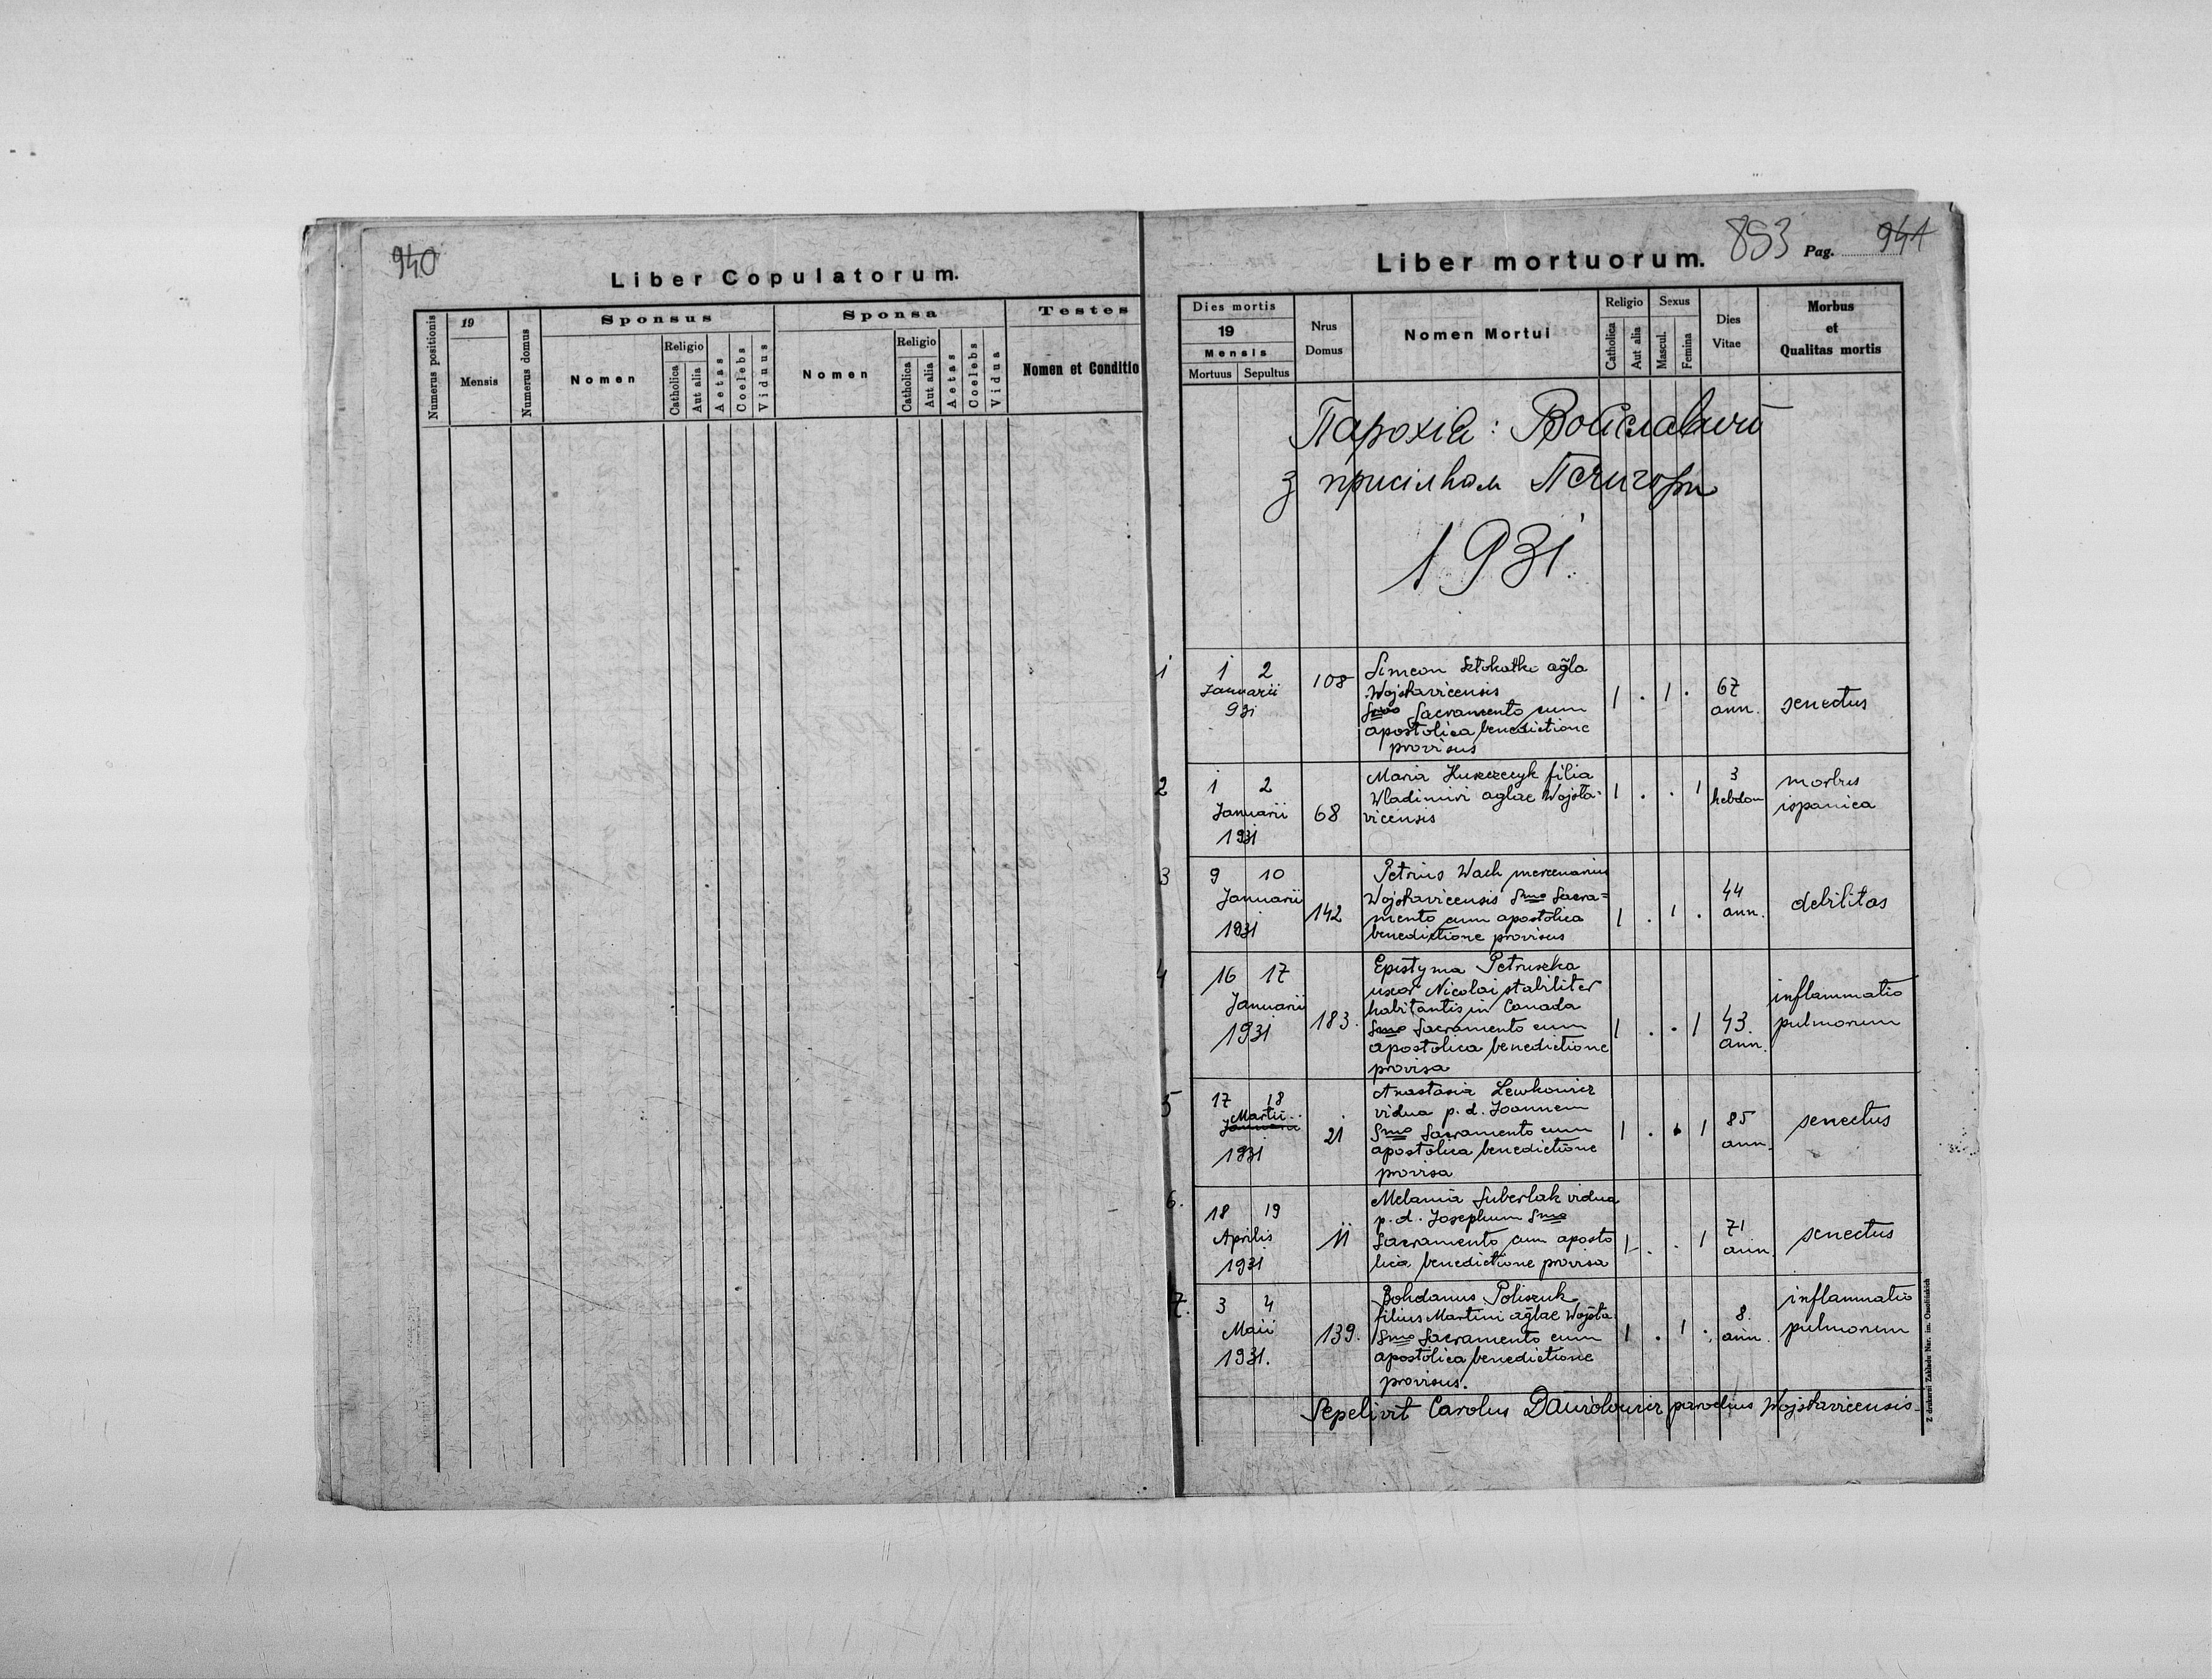 940
Liber Copulatorum.
Numerus positionis
19
Mensis
Numerus domus
Sponsus
Nomen
Religio
Catholica
Aut alia
Aetas
Coelebs
Viduus
Sponsa
Nomen
Religio
Catholica
Aut alia
Aetas
Coelebs
Vidus
Testes
Nomen et Conditio
Liber mortuorum.
853
Pag. 941
Dies mortis
19
Mensis
Mortuus Sepultus
Nrus
Domus
Nomen Mortui
Religio
Catholica
Aut alia
Sexus
Mascul.
Femina
Dies
Vitae
Morbus
et
Qualitas mortis
Парохія: Войславичі
з присілком
1931.
1
1 2
Januarii
931
108
Simeon agla
Wojslavicensis
Smo Sacramento cum
apostolica benedictione
provisus
1 . 1 .
67
ann.
senectus
2
1 2
Januarii
1931
68
Maria filia
Wladimiri aglae Wojsła-
vicensis
1 . . 1
3
hebdom
morbus
ispanica
3
9 10
Januarii
1931
142
Petrus Wach mercenarius
Wojslavicensis Smo Sacra=
mento cum apostolica
benedictione provisus
1 . 1 .
44
ann.
debilitas
4
16 17
Januarii
1931
183.
Epistyma Petruszka
uxor Nicolai stabiliter
habitantis in Canada
Smo Sacramento cum
apostolica benedictione
provisa
1 . . 1
43.
ann.
inflammatio
pulmonum
5
17 18
Martii
Januarii
1931
21
Anastasia Lewkowicz
vidua p. d. Joannem
Smo Sacramento cum
apostolica benedictione
provisa
1 . . 1
85
ann.
senectus
6.
18 19
Aprilis
1931
11
Melania Suberlak vidua
p. d. Josephum Smo
Sacramento cum aposto
lica benedictione provisa
1 . . 1
71
ann.
senectus
7.
3 4
Maii
1931.
139.
Bohdanus Poliszuk
filius Martini aglae Wojsła
Smo Sacramento cum
apostolica benedictione
provisus.
1 . 1 .
8.
ann.
inflammatio
pulmonum
Sepelivit Carolus parochus Wojslavicensis
Z drukarni Zakładu Nar. im. Ossolińskich